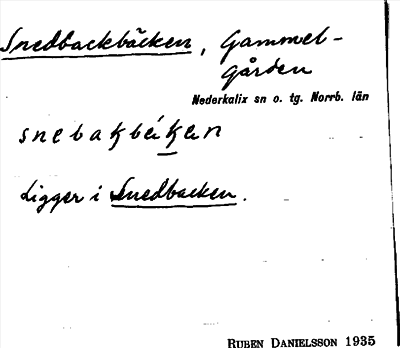 Snedbackbäcken, Gammel-
gården
Nederkalix sn o. tg. Norrb. län
snebakbéken
Ligger i Snedbacken.
RUBEN DANIELSSON 1935